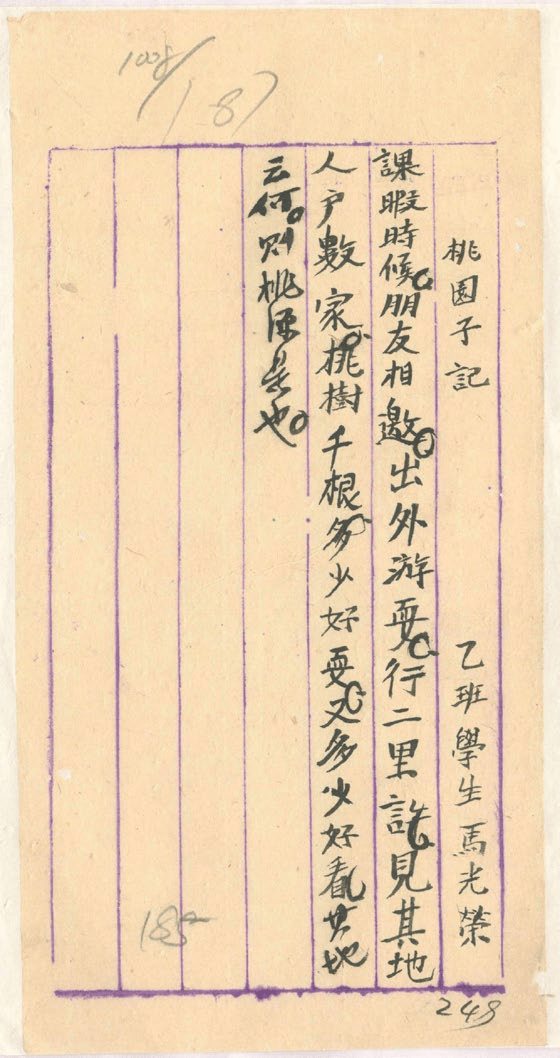 桃園子記　乙班學生　馬光榮
課暇時候。朋友相邀。出外游耍。行二里許。見其地
人户數家。桃樹千根。多少好耍。又多少好看其地
云何。则桃源是也。
1008/187
185
248